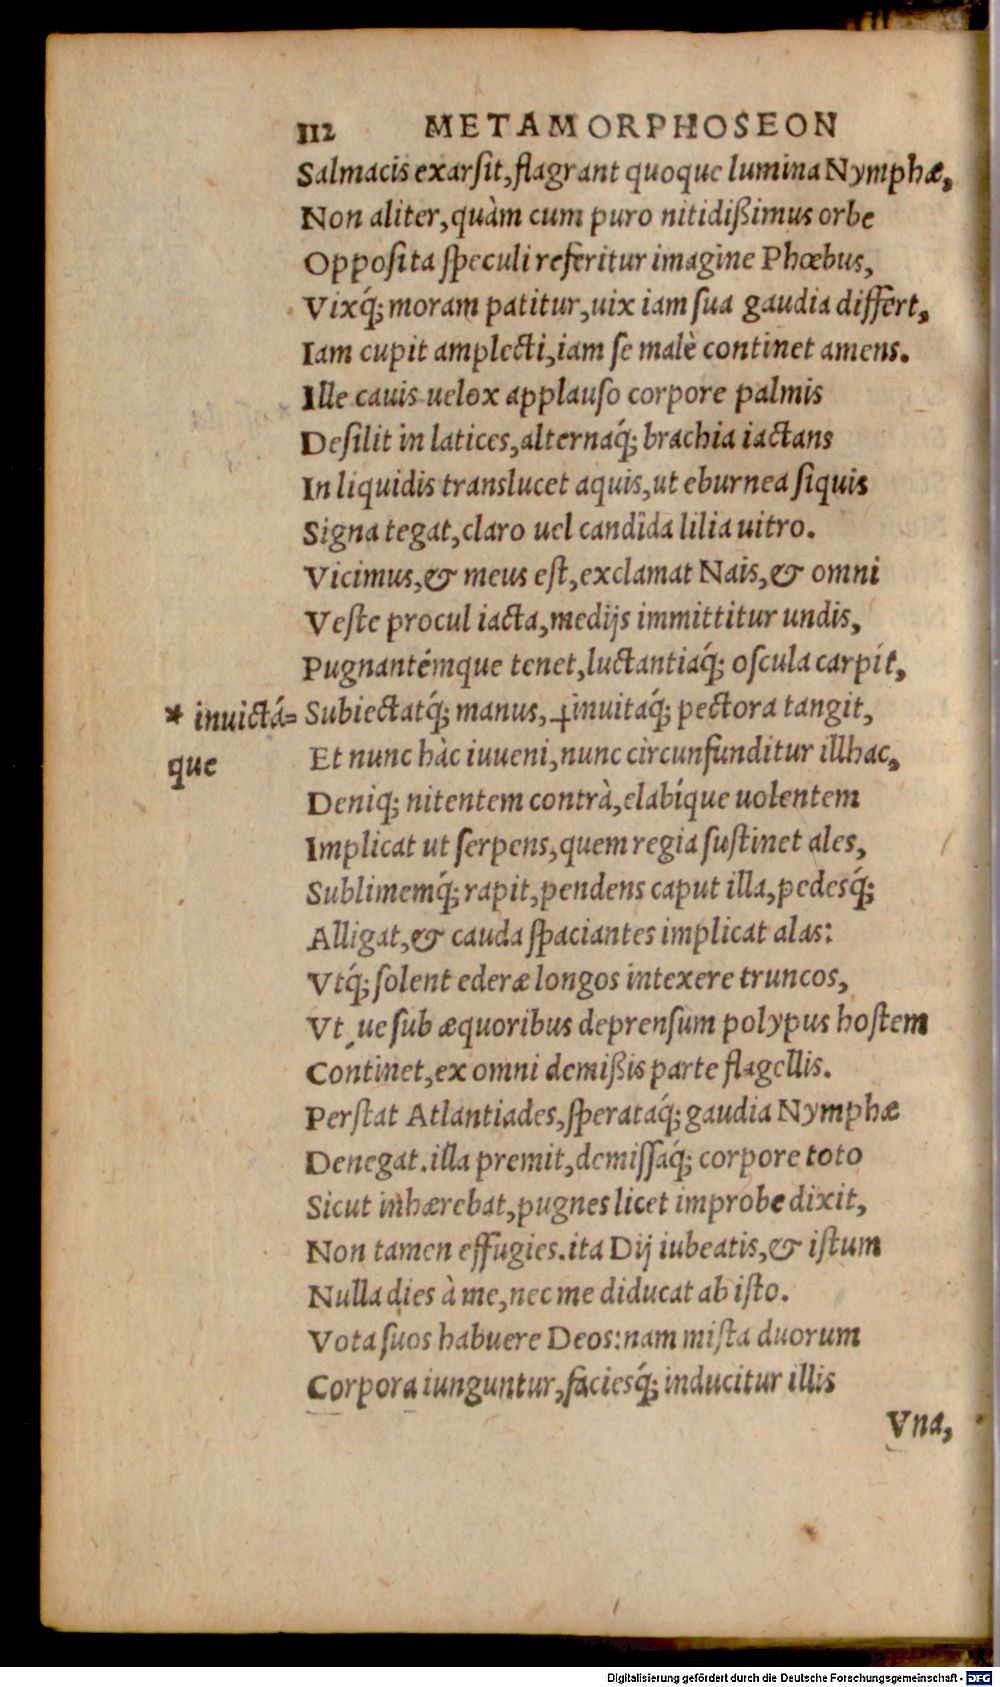 112 METAMORPHOSEON
Salmacis exarſit, flagrant quoque lumina Nymphæ,
Non aliter, quàm cum puro nitidißimus orbe
Oppoſita ſpeculi referitur imagine Phœbus,
Vixq́; moram patitur, uix iam ſua gaudia differt,
Iam cupit amplecti, iam ſe malè continet amens.
Ille cauis uelox applauſo corpore palmis
Deſilit in latices, alternaq́; brachia iactans
In liquidis translucet aquis, ut eburnea ſiquis
Signa tegat, claro uel candida lilia uitro.
Vicimus, & meus eſt, exclamat Nais, & omni
Veſte procul iacta, medijs immittitur undis,
Pugnantémque tenet, luctantiaq́; oſcula carpit,
* inuictá=
que
Subiectatq́; manus, ⁺inuitaq́; pectora tangit,
Et nunc hàc iuueni, nunc circunfunditur illhac,
Deniq; nitentem contrà, elabíque uolentem
Implicat ut ſerpens, quem regia ſuſtinet ales,
Sublimemq́; rapit, pendens caput illa, pedesq́;
Alligat, & cauda ſpaciantes implicat alas:
Vtq́; ſolent ederæ longos intexere truncos,
Vt´ue ſub æquoribus deprenſum polypus hoſtem
Continet, ex omni demißis parte flagellis.
Perſtat Atlantiades, ſperataq́; gaudia Nymphæ
Denegat. illa premit, demiſſaq́; corpore toto
Sicut inhærebat, pugnes licet improbe dixit,
Non tamen effugies. ita Dij iubeatis, & iſtum
Nulla dies à me, nec me diducat ab iſto.
Vota ſuos habuere Deos: nam miſta duorum
Corpora iunguntur, faciesq́; inducitur illis
Vna,
Digitalisierung gefördert durch die Deutsche Forschungsgemeinschaft - DFG